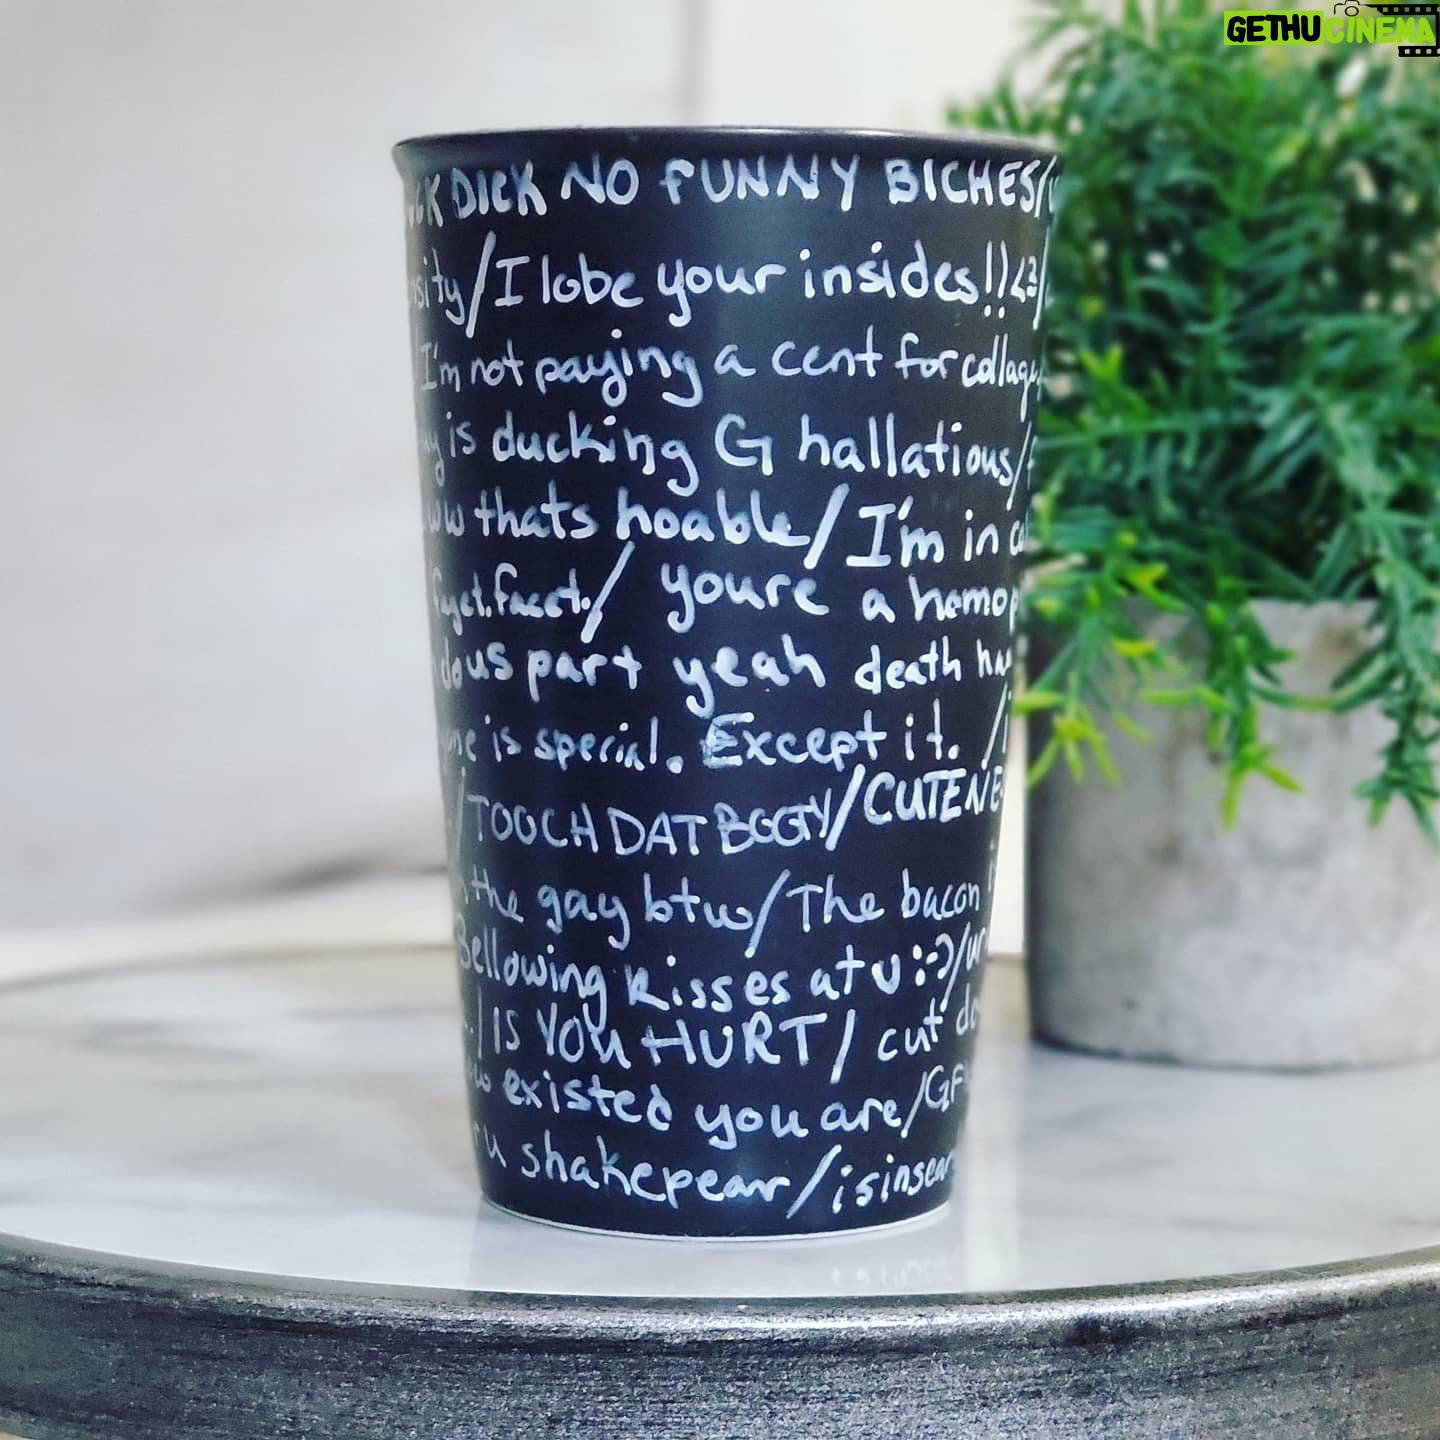 GETHU CINEMA
DICK NO FUNNY BICHES/
sity/I lobe your insides!!<3/
I'm not paying a cent for collage
is ducking G hallatious/
ww thats hoable/I'm in
facct./ youre a homop
dous part yeah death ha
is special. Except it. /i
/TOUCH DAT BOOTY/CUTENE
the gay btw/The bacon i
Bellowing kisses at u :-)/ur
/IS YOU HURT/ cut do
existed you are/GF
ru shakepear/isinsear